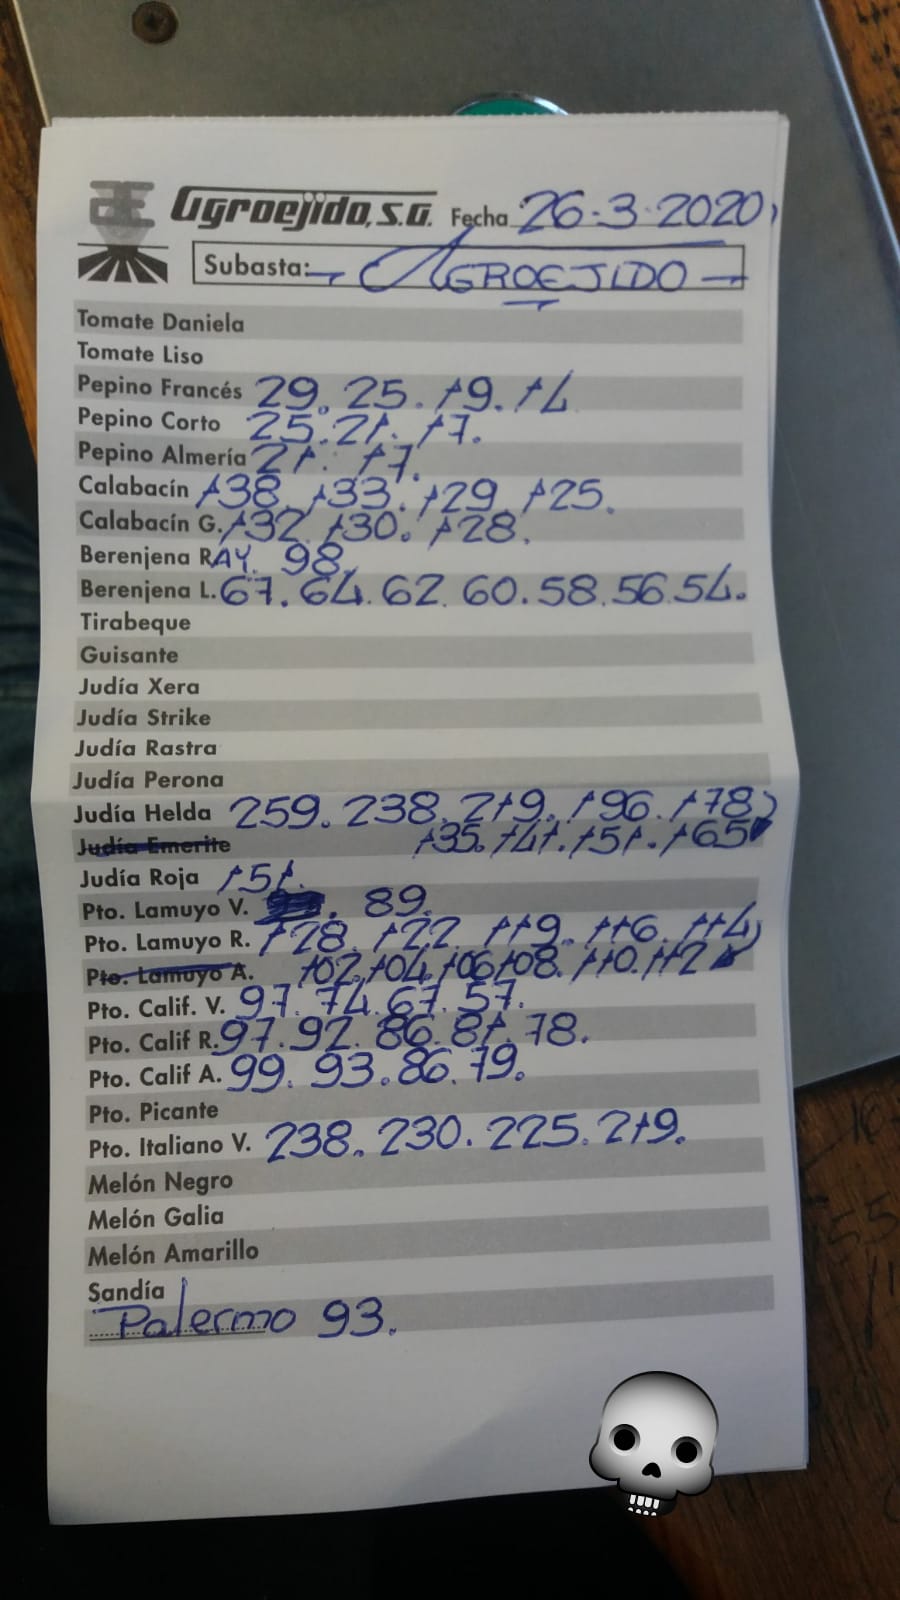 Agroejido, S.A. Fecha 26-3-2020
Subasta: AGROEJIDO
Tomate Daniela
Tomate Liso
Pepino Francés 29. 25. 19. 14
Pepino Corto 25. 21. 17.
Pepino Almería 21. 17.
Calabacín 138 133. 129 125.
Calabacín G. 132 130. 128.
Berenjena RAY. 98.
Berenjena L. 67. 64. 62 60. 58. 56. 54.
Tirabeque
Guisante
Judía Xera
Judía Strike
Judía Rastra
Judía Perona
Judía Helda 259. 238. 219. 196. 178
Judía Emerite 135. 141. 151. 165
Judía Roja 151.
Pto. Lamuyo V. 89.
Pto. Lamuyo R. 128. 122 119. 116. 114
Pto. Lamuyo A. 102. 104. 106 108. 110. 112
Pto. Calif. V. 97. 74. 67. 57.
Pto. Calif R. 97. 92. 86. 81. 78.
Pto. Calif A. 99. 93. 86. 79.
Pto. Picante
Pto. Italiano V. 238. 230. 225. 219.
Melón Negro
Melón Galia
Melón Amarillo
Sandía
Palermo 93.